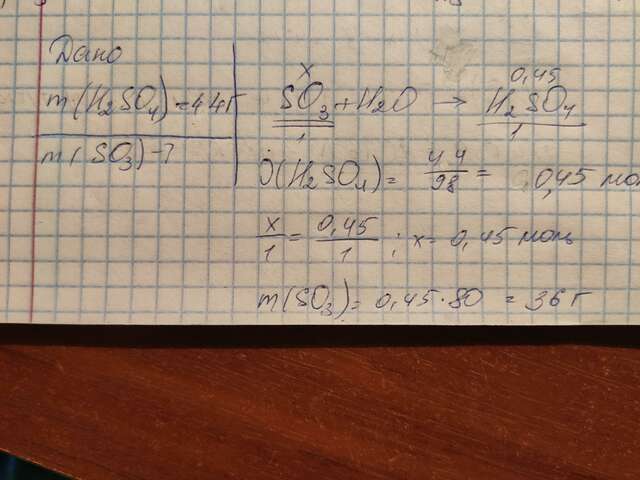 Дано
m(H₂SO₄)=44г
m(SO₃)-?
x 0,45
SO₃+H₂O → H₂SO₄
1 1
ν(H₂SO₄)= 44/98 = 0,45 мол
x/1 = 0,45/1 ; x= 0,45 моль
m(SO₃)= 0,45·80 = 36 г